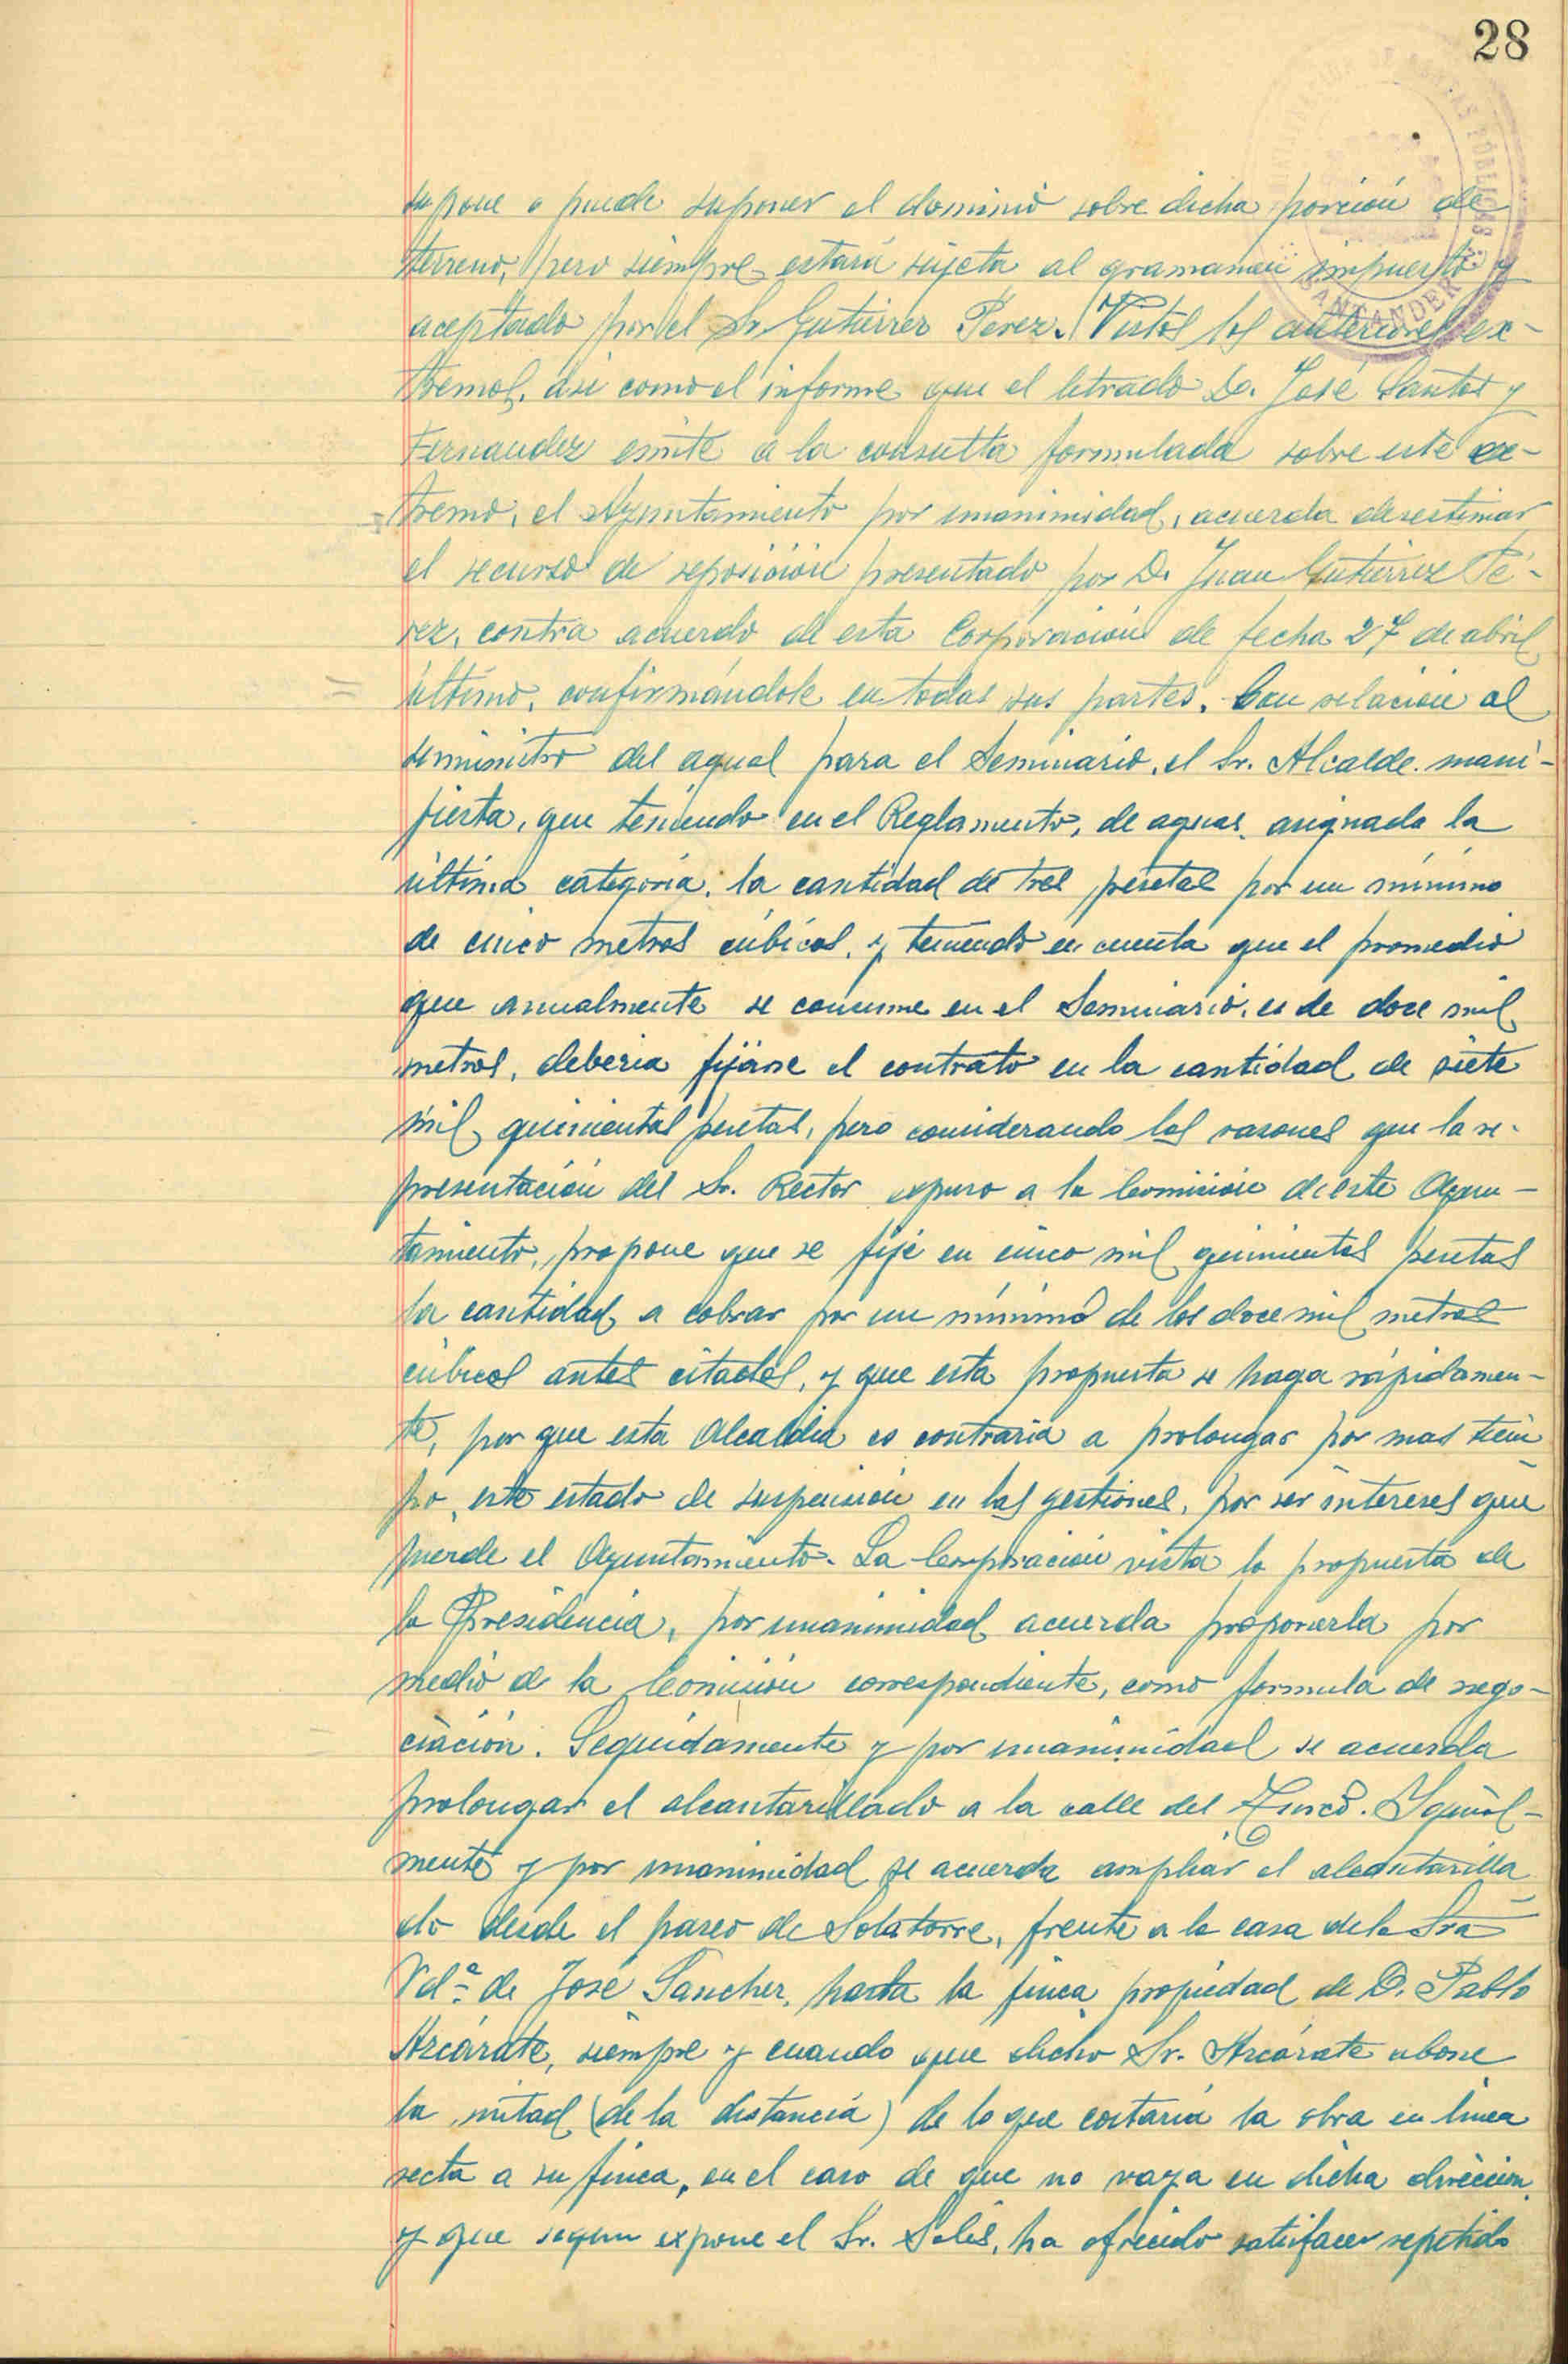 28
supone o puede suponer el dominio sobre dicha porción de
terreno, pero siempre estará sujeta al gramamen impuesto y
aceptado por el Sr. Gutierrez Pérez. Vistos los anteriores ex-
tremos, asi como el informe que el letrado D. José Santos y
Fernandez emite a la consulta formulada sobre este ex-
tremo, el Ayuntamiento por unanimidad, acuerda desestimar
el recurso de reposición presentado por D. Juan Gutierrez Pé-
rez, contra acuerdo de esta Corporación de fecha 27 de abril
último, confirmándole en todas sus partes. Con relación al
suministro del agua para el Seminario, el Sr. Alcalde mani-
fiesta, que teniendo en el Reglamento, de aguas, asignada la
última categoria, la cantidad de tres pesetas por un mínimo
de cinco metros cúbicos, y teniendo en cuenta que el promedio
que anualmente se consume en el Seminario, es de doce mil
metros, deberia fijarse el contrato en la cantidad de siete
mil quinientas pesetas, pero considerando las razones que la re-
presentación del Sr. Rector expuso a la Comisión de este Ayun-
tamiento, propone que se fije en cinco mil quinientas pesetas
la cantidad a cobrar por un mínimo de los doce mil metros
cúbicos antes citados, y que esta propuesta se haga rápidamen-
te, por que esta Alcaldia es contraria a prolongar por mas tiem
po, este estado de suspensión en las gestiones, por ser intereses que
pierde el Ayuntamiento. La Corporación vista la propuesta de
la Presidencia, por unanimidad acuerda proponerla por
medio de la Comisión correspondiente, como formula de nego-
ciación. Seguidamente y por unanimidad se acuerda
prolongar el alcantarillado a la calle del . Igual-
mente y por unanimidad se acuerda ampliar el alcantarilla
do desde el paseo de Solatorre, frente a la casa de la Sra
Vdª de José Sanchez, hasta la finca propiedad de D. Pablo
Azcárate, siempre y cuando que dicho Sr. Azcárate abone
la mitad (de la distancia) de lo que costaria la obra en linea
recta a su finca, en el caso de que no vaya en dicha dirección
y que segun expone el Sr. Solís, ha ofrecido satisfacer repetido
SANTANDER